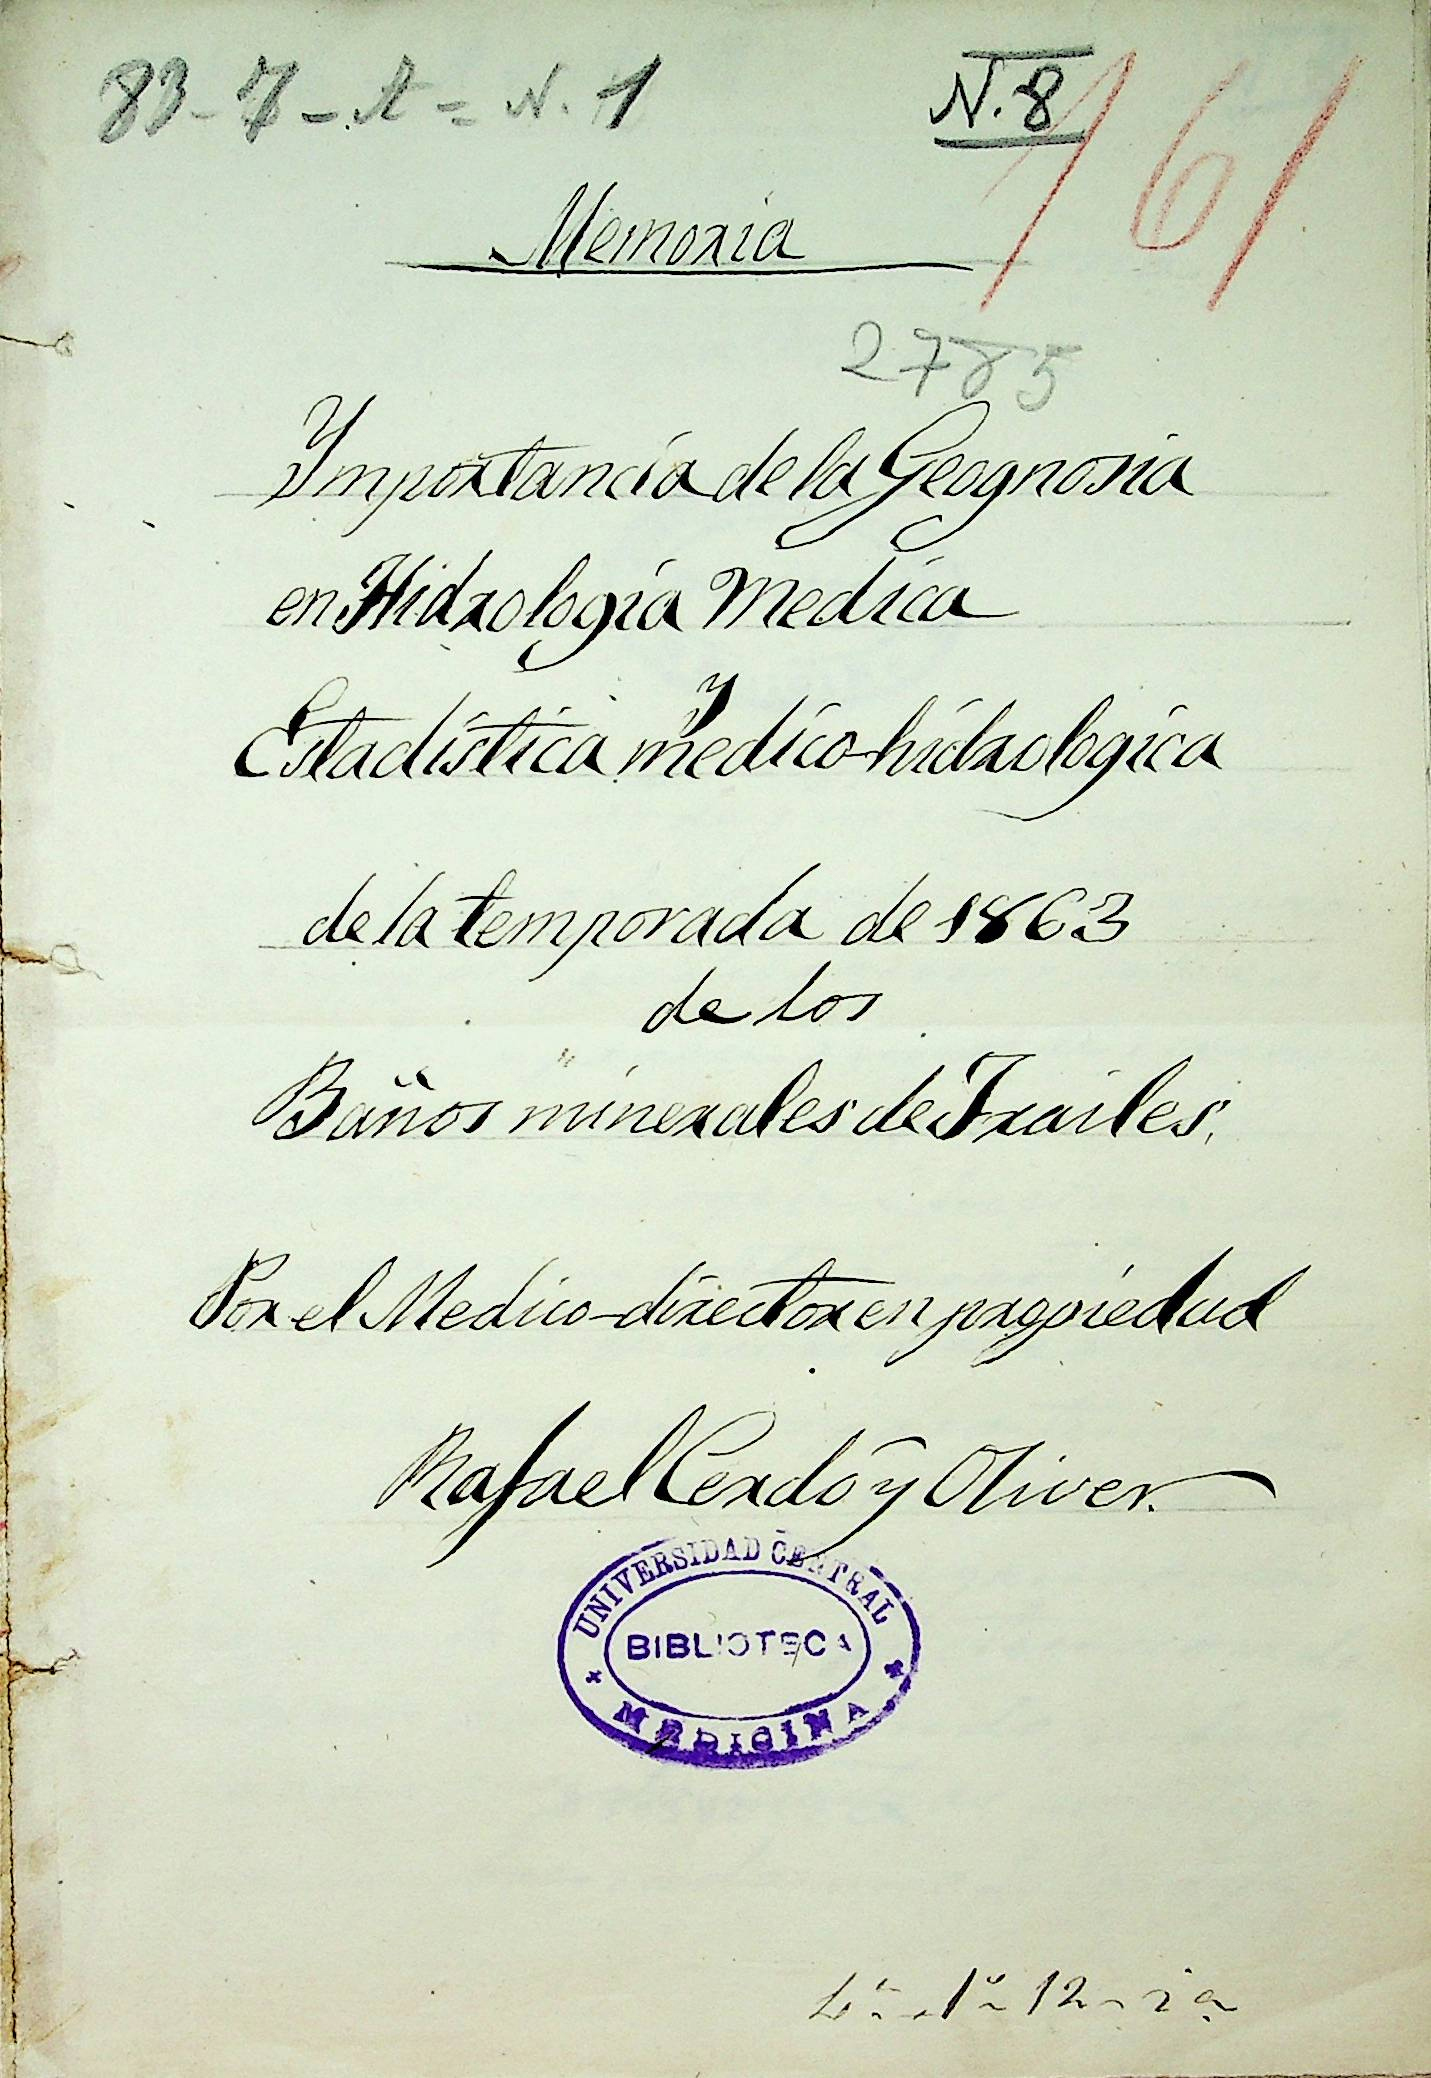 83-7-A=N.1
N.8
161
Memoria
2785
Ymportancia de la Geognosia
en Hidrología Medica
y
Estadística medico-hidrologica
de la temporada de 1863
de los
Baños minerales de Frailes.
Por el Medico-director en propiedad
Rafael Cerdó y Oliver.
UNIVERSIDAD CENTRAL
BIBLIOTECA
MEDICINA